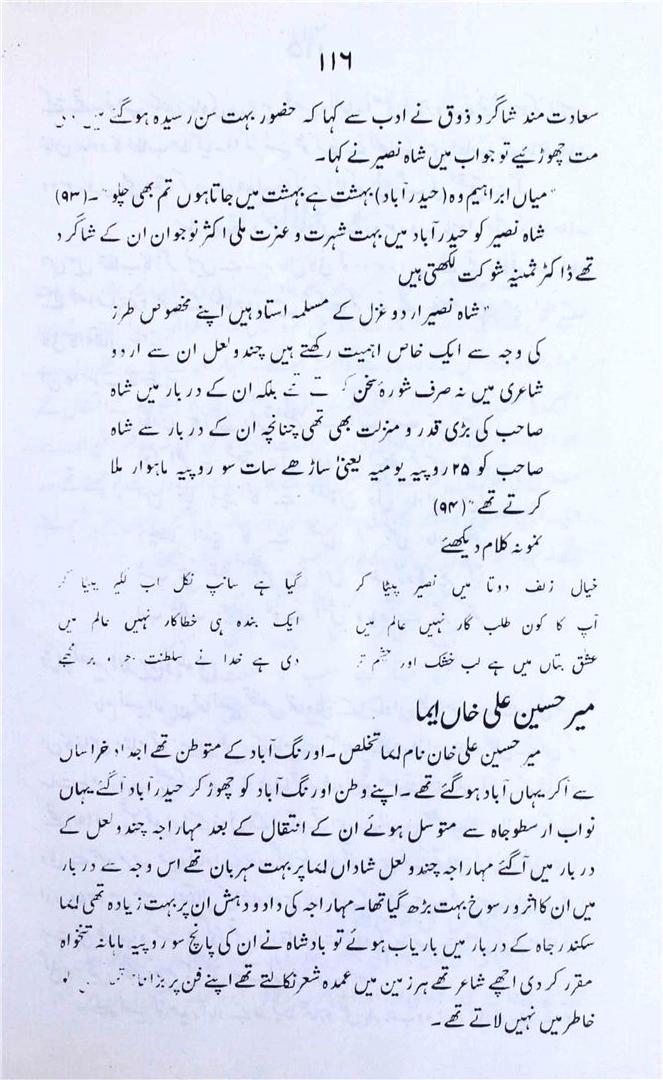 ۱۱۶
سعادت مند شاگرد ذوق نے ادب سے کہا کہ حضور بہت سن رسیدہ ہوگئے ہیں
مت چھوڑیئے تو جواب میں شاہ نصیر نے کہا۔
"میاں ابراہیم وہ (حیدرآباد) بہشت ہے بہشت میں جاتا ہوں تم بھی چلو"۔ (۹۳)
شاہ نصیر کو حیدرآباد میں بہت شہرت و عزت ملی اکثر نوجوان ان کے شاگرد
تھے ڈاکٹر ثمینہ شوکت لکھتی ہیں
"شاہ نصیر اردو غزل کے مسلمہ استاد ہیں اپنے مخصوص طرز
کی وجہ سے ایک خاص اہمیت رکھتے ہیں چندو لعل ان سے اردو
شاعری میں نہ صرف شورۂ سخن تھے بلکہ ان کے دربار میں شاہ
صاحب کی بڑی قدر و منزلت بھی تھی چنانچہ ان کے دربار سے شاہ
صاحب کو ۲۵ روپیہ یومیہ یعنی ساڑھے سات سو روپیہ ماہوار ملا
کرتے تھے" (۹۴)
نمونہ کلام دیکھئے
خیال زلف دوتا میں نصیر پیٹا کر گیا ہے سانپ نکل اب لکیر پیٹا کر
آپ کا کون طلب گار نہیں عالم میں ایک بندہ ہی خطاکار نہیں عالم میں
عشق بتاں میں ہے لب خشک اور چشم تر دی ہے خدا نے سلطنت بر مجھے
میر حسین علی خاں ایما
میر حسین علی خان نام ایما تخلص۔ اورنگ آباد کے متوطن تھے اجداد خراساں
سے آکر یہاں آباد ہوگئے تھے۔ اپنے وطن اورنگ آباد کو چھوڑ کر حیدرآباد آگئے یہاں
نواب ارسطوجاہ سے متوسل ہوئے ان کے انتقال کے بعد مہاراجہ چندو لعل کے
دربار میں آگئے مہاراجہ چندو لعل شاداں ایما پر بہت مہربان تھے اس وجہ سے دربار
میں ان کا اثر و رسوخ بہت بڑھ گیا تھا۔ مہاراجہ کی داد و دہش ان پر بہت زیادہ تھی ایما
سکندر جاہ کے دربار میں باریاب ہوئے تو بادشاہ نے ان کی پانچ سو روپیہ ماہانہ تنخواہ
مقرر کر دی اچھے شاعر تھے ہر زمین میں عمدہ شعر نکالتے تھے اپنے فن پر بڑا
خاطر میں نہیں لاتے تھے۔